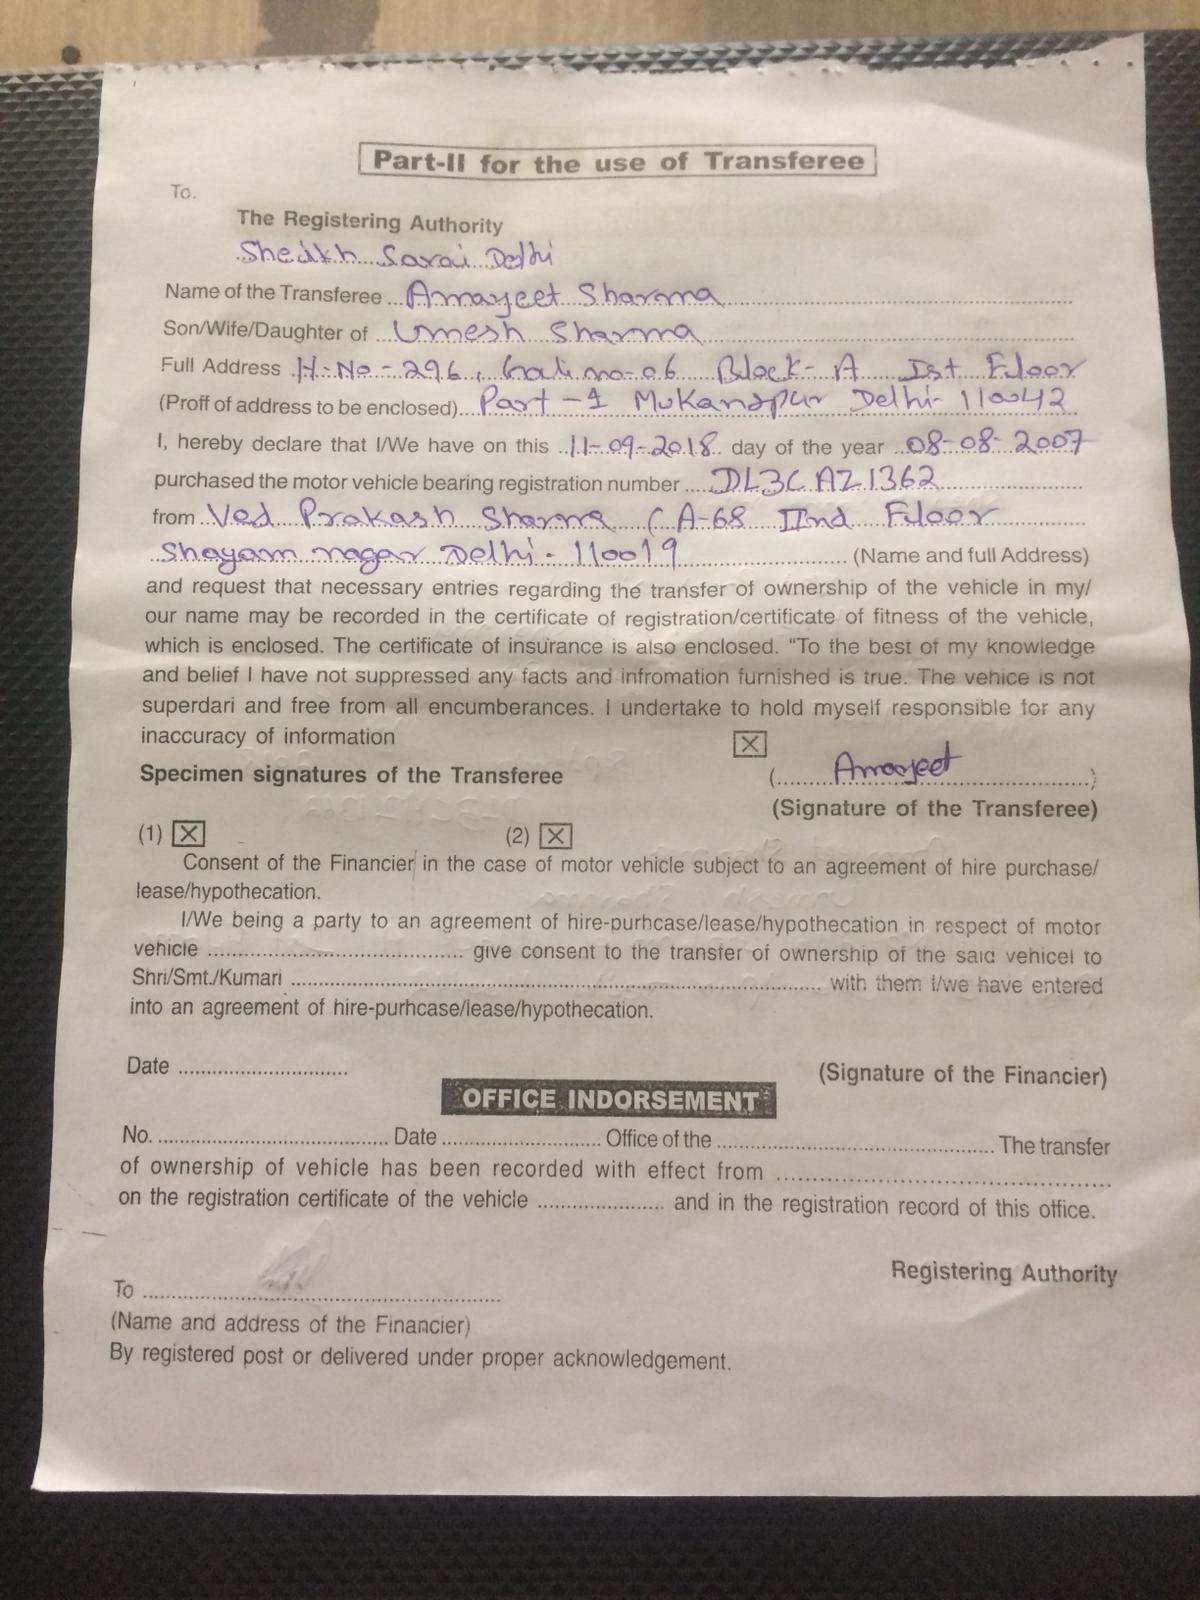 Part-II for the use of Transferee
To.
The Registering Authority
Sheikh Sarai Delhi
Name of the Transferee ... Amarjeet Sharma
Son/Wife/Daughter of ... Umesh Sharma
Full Address .H.No - 296, Gali no-06 Block-A Ist Floor
(Proff of address to be enclosed)... Part-1 Mukandpur Delhi-110042
I, hereby declare that I/We have on this ..11-09-2018.. day of the year ..08-08-2007
purchased the motor vehicle bearing registration number .... DL3CAZ1362
from .. Ved Prakash Sharma ( A-68 IInd Floor
Shayam nagar Delhi - 110019 ........ (Name and full Address)
and request that necessary entries regarding the transfer of ownership of the vehicle in my/
our name may be recorded in the certificate of registration/certificate of fitness of the vehicle,
which is enclosed. The certificate of insurance is also enclosed. "To the best of my knowledge
and belief I have not suppressed any facts and infromation furnished is true. The vehice is not
superdari and free from all encumberances. I undertake to hold myself responsible for any
inaccuracy of information
Specimen signatures of the Transferee (...... Amarjeet ......)
(Signature of the Transferee)
(1) ☒ (2) ☒
Consent of the Financier in the case of motor vehicle subject to an agreement of hire purchase/
lease/hypothecation.
I/We being a party to an agreement of hire-purhcase/lease/hypothecation in respect of motor
vehicle ........................ give consent to the transfer of ownership of the said vehicel to
Shri/Smt./Kumari ........................ with them I/we have entered
into an agreement of hire-purhcase/lease/hypothecation.
Date ........................ (Signature of the Financier)
OFFICE INDORSEMENT
No. ........................ Date ........................ Office of the ........................ The transfer
of ownership of vehicle has been recorded with effect from ........................
on the registration certificate of the vehicle ........................ and in the registration record of this office.
Registering Authority
To ........................
(Name and address of the Financier)
By registered post or delivered under proper acknowledgement.